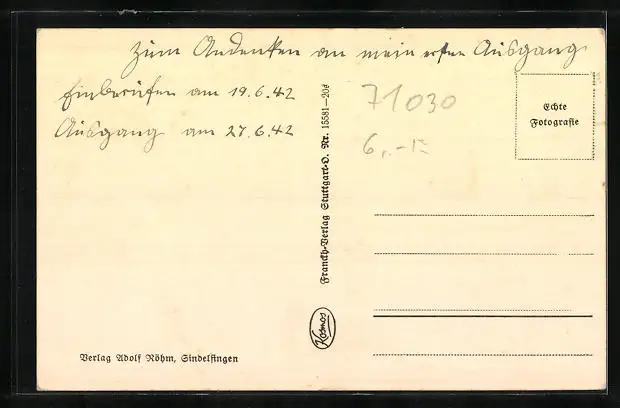 Zum Andenken an mein ersten Ausgang
Einberufen am 19.6.42
Ausgang am 27.6.42
71030
6,.-
Echte
Fotografie
Franckh-Verlag Stuttgart-O. Nr. 15581—20d
Kosmos
Verlag Adolf Röhm, Sindelfingen